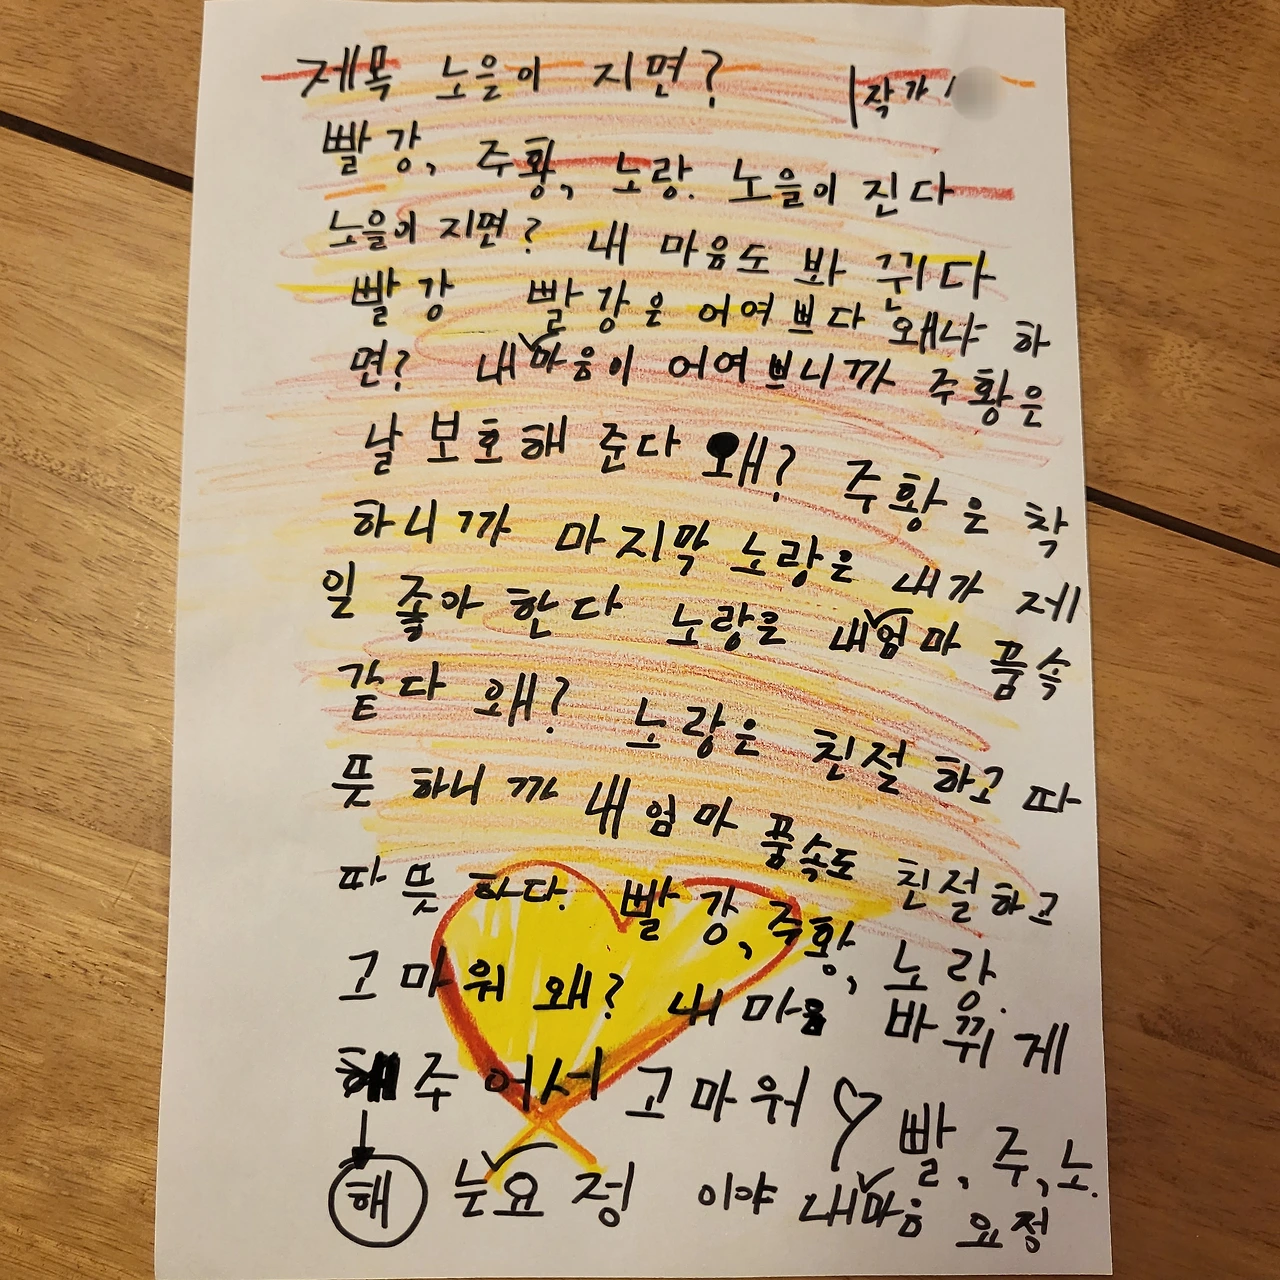 제목 노을이 지면? 작가!
빨강, 주황, 노랑. 노을이 진다
노을이 지면? 내 마음도 봐 뀐다
빨강 빨강은 어여쁘다 왜냐 하
면? 내 마음이 어여쁘니까 주황은
날 보호해 준다 왜? 주황은 착
하니까 마지막 노랑은 내가 제
일 좋아 한다 노랑은 내 엄마 품속
같다 왜? 노랑은 친절 하고 따
뜻 하니까 내 엄마 품속도 친절하고
따뜻 하다. 빨강, 주황, 노랑.
고마워 왜? 내 마음 바뀌게
해 주어서 고마워 ♡ 빨, 주, 노.
해 는 요정 이야 내 마음 요정